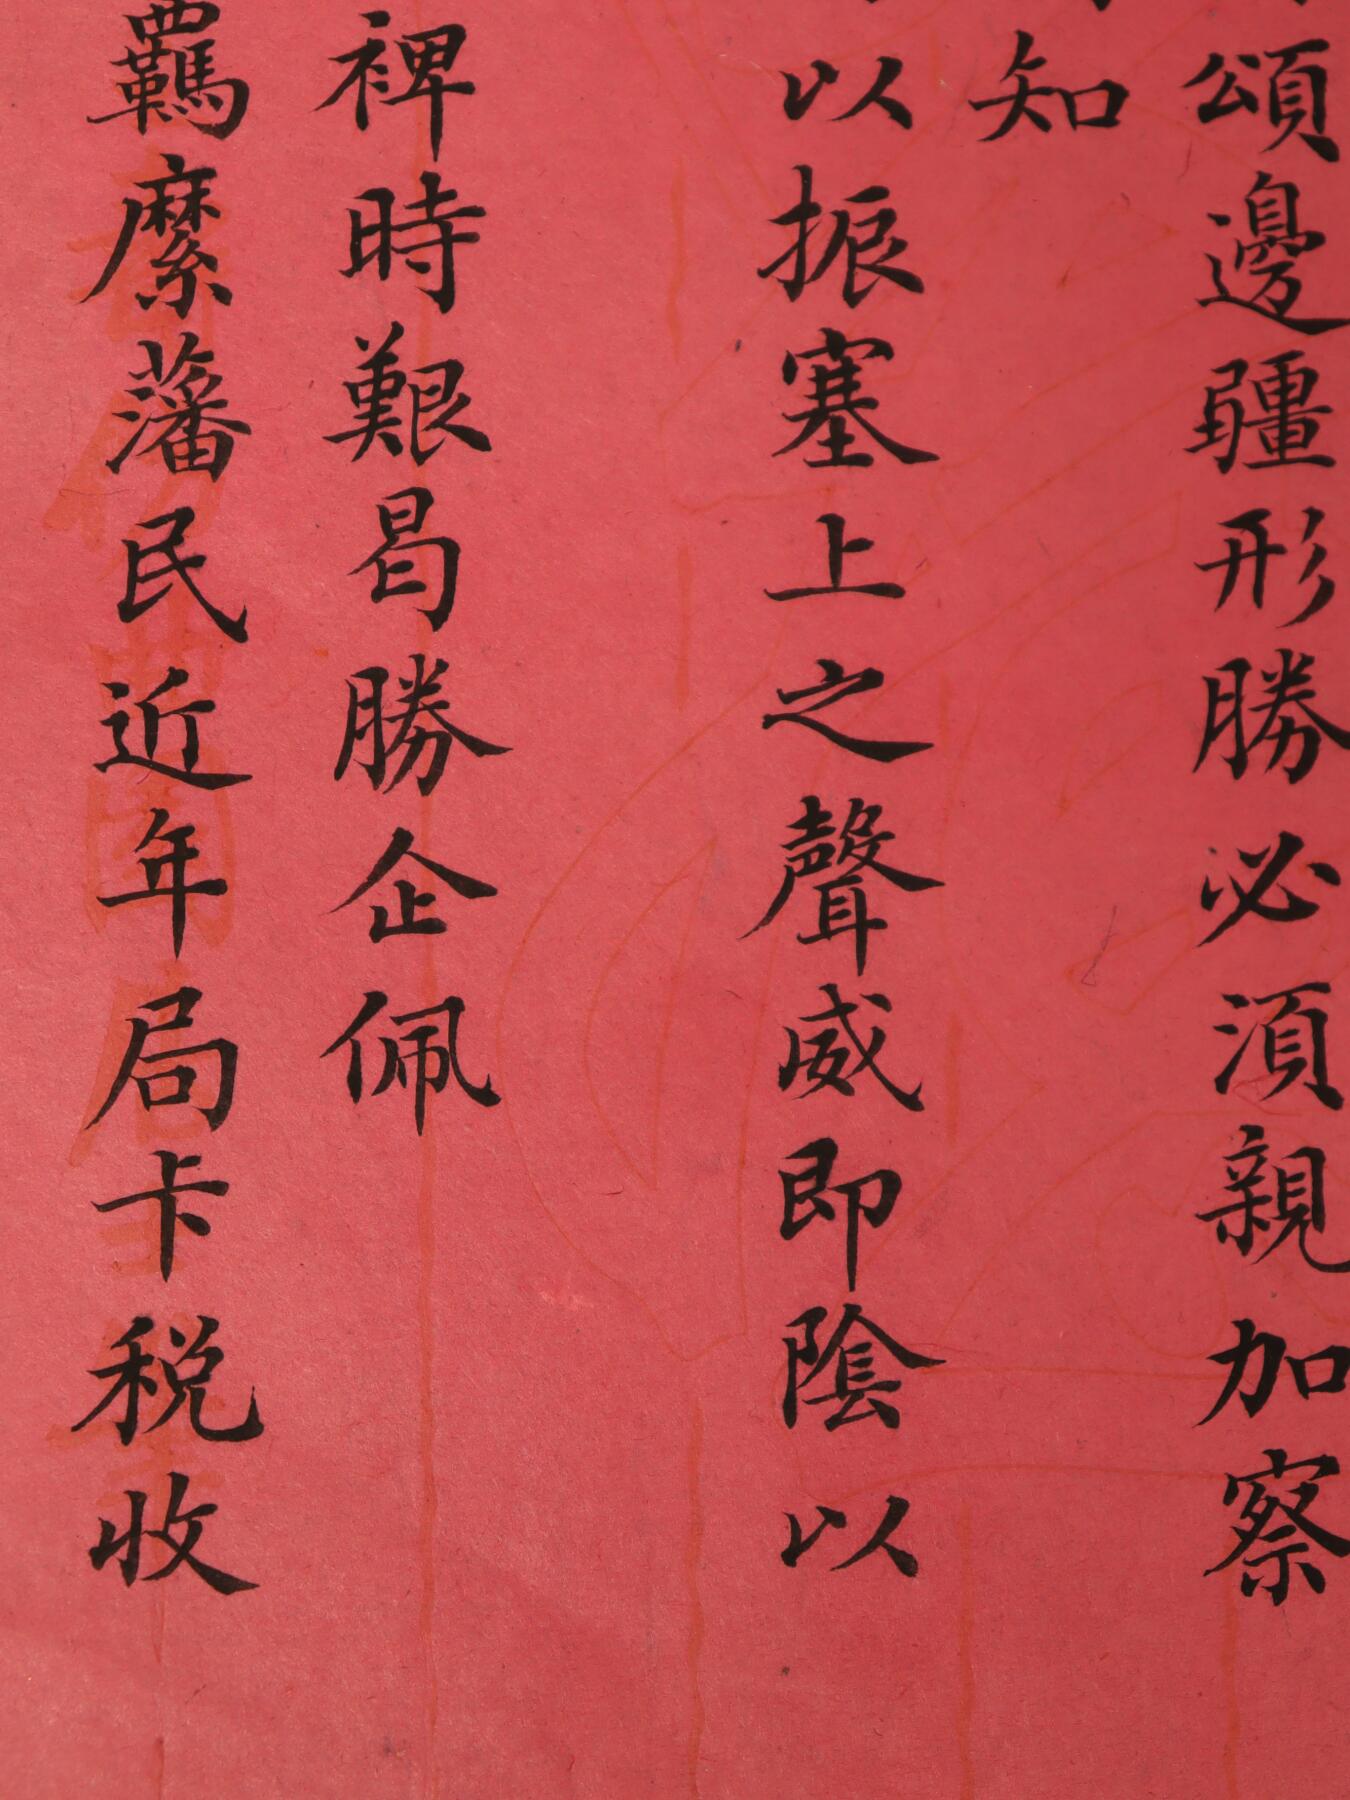 頌邊疆形勝必須親加察
知
以振塞上之聲威即隂以
裨時艱曷勝企佩
羈縻藩民近年局卡税收